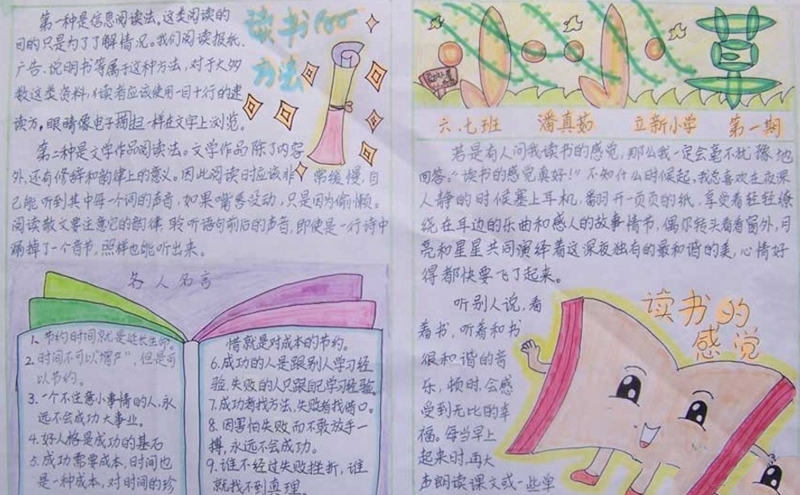 第一种是信息阅读法,这类阅读的
目的只是为了了解情况。我们阅读报纸、
广告、说明书等属于这种方法,对于大多
数这类资料,读者应该使用一目十行的速
读方,眼睛像电子扫描一样在文字上浏览。
第二种是文学作品阅读法。文学作品除了内容
外,还有修辞和韵律上的意义。因此阅读时应该非常缓慢,自
己能听到其中每一个词的声音,如果嘴唇没动,只是因为偷懒。
阅读散文要注意它的韵律,聆听语句前后的声音,即使是一行诗中
漏掉了一个音节,照样也能听出来。
读书的
方法
名人名言
1、节约时间就是延长生命。
2、时间不可以 但是可
以节约。
3、一个不注意小事情的人,永
远不会成功大事业。
4、好人格是成功的基石
5、成功需要成本,时间也
是一种成本,对时间的珍
惜就是对成本的节约。
6、成功的人是跟别人学习经
验,失败的人只跟自己学习经验。
7、成功者找方法,失败者找借口。
8、因害怕失败而不敢放手一
搏,永远不会成功。
9、谁不经过失败挫折,谁
就找不到真理。
六.七班 潘真茹 立新小学 第一期
若是有人问我读书的感觉,那么我一定会毫不犹豫地
回答:“读书的感觉真好!”不知什么时候起,我总喜欢在夜深
人静的时候塞上耳机,翻开一页页的纸,享受着轻轻缭
绕在耳边的乐曲和感人的故事情节,偶尔转头看看窗外,月
亮和星星共同演绎着这深夜独有的最和谐的美,心情好
得都快要飞了起来。
听别人说,看
着书,听着和书
很和谐的音
乐,顿时,会感
受到无比的幸
福。每当早上
起来时,再大
声朗读课文或一些单
读书的
感觉